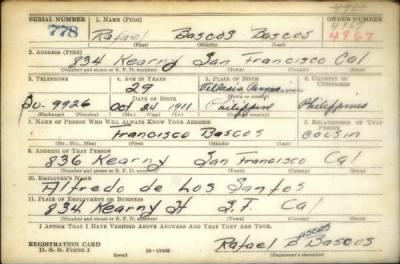 SERIAL NUMBER 1. NAME (Print) ORDER NUMBER
778 Rafael Bascos Bascos 4967
(First) (Middle) (Last)
2. ADDRESS (Print)
834 Kearny San Francisco Cal
(Number and street or R. F. D. number) (Town) (County) (State)
3. TELEPHONE 4. AGE IN YEARS 5. PLACE OF BIRTH 6. COUNTRY OF CITIZENSHIP
29
DATE OF BIRTH
9926 Oct 24 1911 Philippine Philippines
(Exchange) (Number) (Mo.) (Day) (Yr.) (State or country)
7. NAME OF PERSON WHO WILL ALWAYS KNOW YOUR ADDRESS 8. RELATIONSHIP OF THAT PERSON
Francisco Bascos Cousin
9. ADDRESS OF THAT PERSON
836 Kearny San Francisco Cal
(Number and street or R. F. D. number) (Town) (County) (State)
10. EMPLOYER'S NAME
Alfredo de Los Santos
11. PLACE OF EMPLOYMENT OR BUSINESS
834 Kearny St S.F. Cal
(Number and street or R. F. D. number) (Town) (County) (State)
I AFFIRM THAT I HAVE VERIFIED ABOVE ANSWERS AND THAT THEY ARE TRUE.
Rafael Bascos Bascos
REGISTRATION CARD
D. S. S. Form 1 (over) (Registrant's signature)